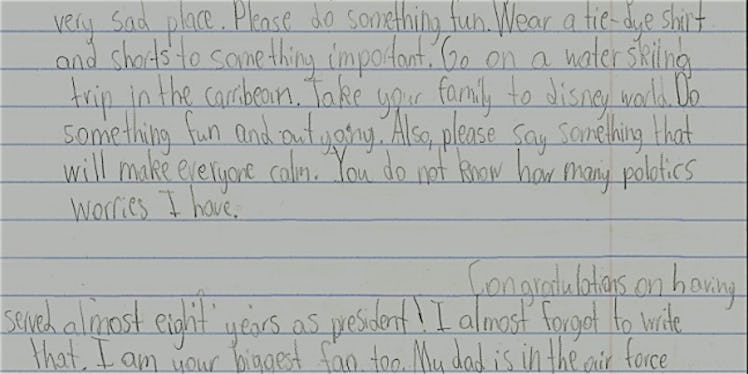 very sad place. Please do something fun. Wear a tie-dye shirt
and shorts to something important. Go on a water skiing
trip in the carribean. Take your family to disney world. Do
something fun and outgoing. Also, please say something that
will make everyone calm. You do not know how many polotics
worries I have.
Congratulations on having
served almost eight years as president! I almost forgot to write
that. I am your biggest fan, too. My dad is in the air force